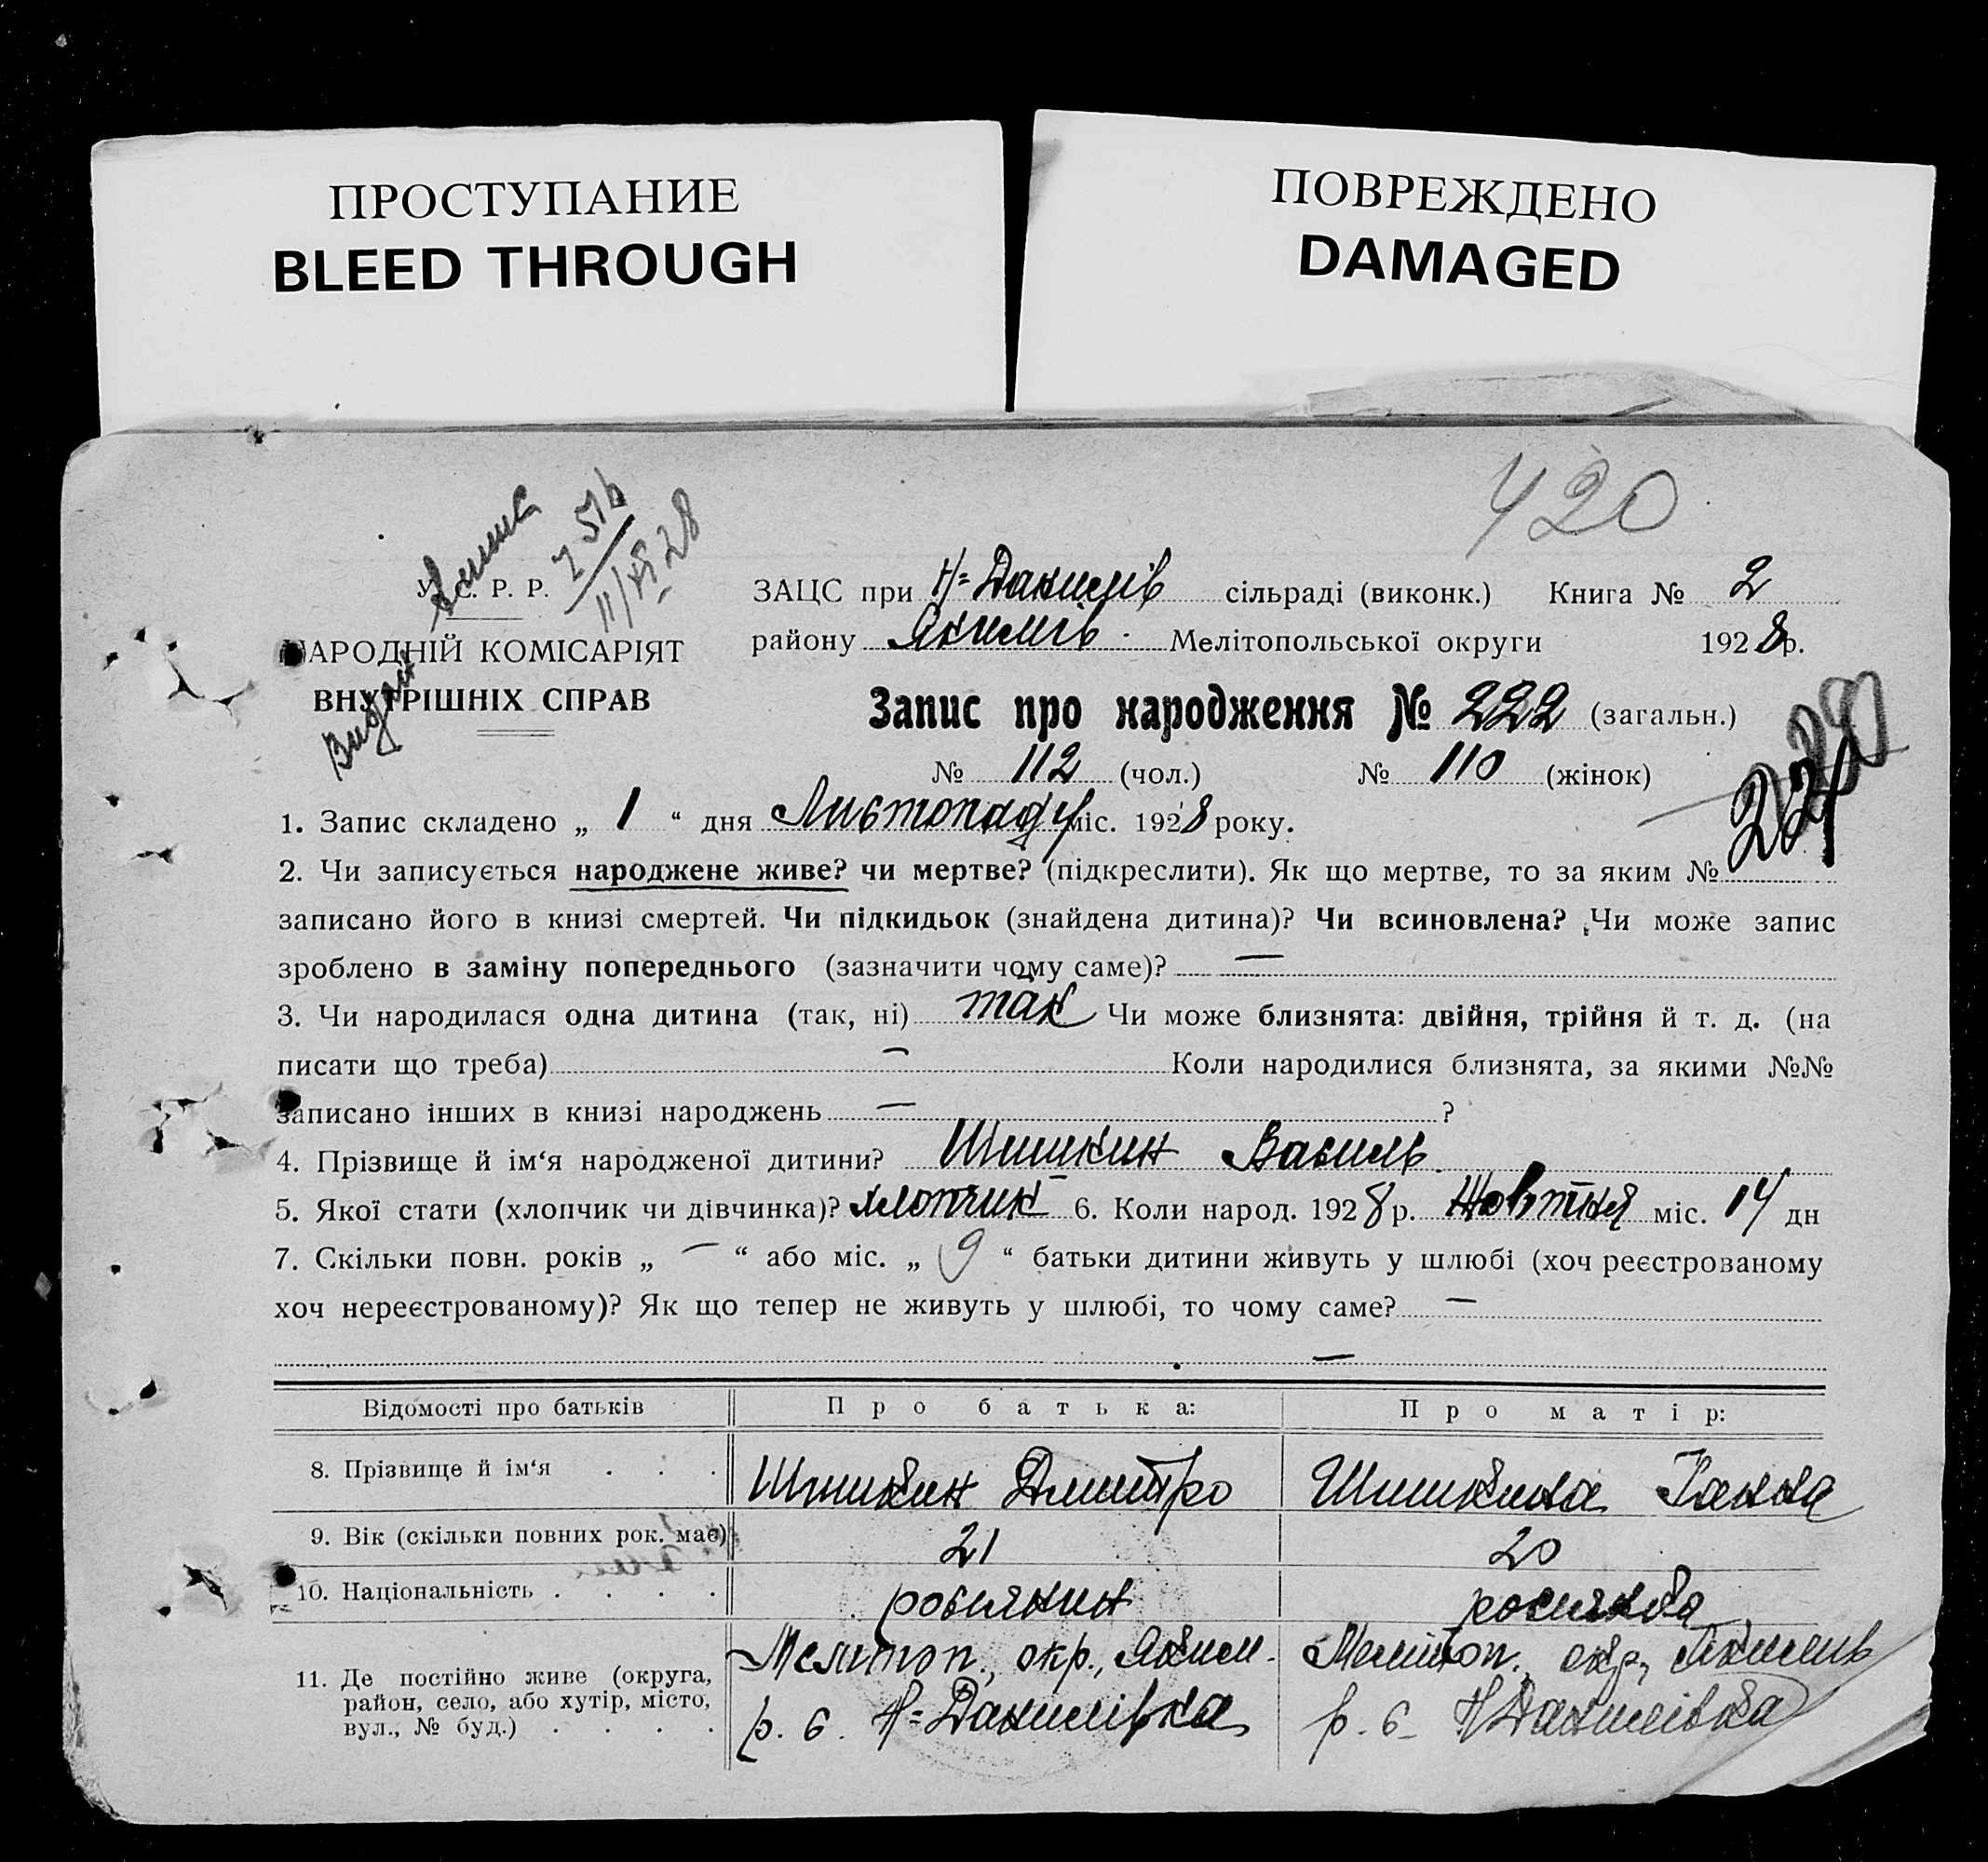 ПРОСТУПАНИЕ
BLEED THROUGH
ПОВРЕЖДЕНО
DAMAGED
420
У. С. Р. Р.
НАРОДНІЙ КОМІСАРІЯТ
ВНУТРІШНІХ СПРАВ
ЗАЦС при Н=Данилів сільраді (виконк.) Книга № 2
району Якимів. Мелітопольської округи 1928 р.
Запис про народження № 222 (загальн.)
№ 112 (чол.) № 110 (жінок)
1. Запис складено „ 1 “ дня Листопаду міс. 1928 року.
2. Чи записується народжене живе? чи мертве? (підкреслити). Як що мертве, то за яким №
записано його в книзі смертей. Чи підкидьок (знайдена дитина)? Чи всиновлена? Чи може запис
зроблено в заміну попереднього (зазначити чому саме)? —
3. Чи народилася одна дитина (так, ні) так Чи може близнята: двійня, трійня й т. д. (на
писати що треба) — Коли народилися близнята, за якими №№
записано інших в книзі народжень — ?
4. Прізвище й ім‘я народженої дитини? Шишкин Василь
5. Якої стати (хлопчик чи дівчинка)? хлопчик 6. Коли народ. 1928 р. Жовтня міс. 14 дн
7. Скільки повн. років „ — “ або міс. „ 9 “ батьки дитини живуть у шлюбі (хоч реєстрованому
хоч нереєстрованому)? Як що тепер не живуть у шлюбі, то чому саме? —
—
Відомості про батьків Про батька: Про матір:
8. Прізвище й ім‘я . . . Шишкин Дмитро Шишкина Ганна
9. Вік (скільки повних рок. має) 21 20
10. Національність . . . . росиянин росиянка
11. Де постійно живе (округа,
район, село, або хутір, місто,
вул., № буд.) . . . .
Мелитоп., окр., Яким.
р. с. Н=Данилівка
Мелитоп., окр., Якимів
р. с. Н Данилівка